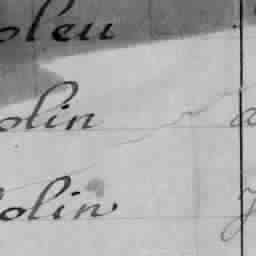 oleu
olin a
olin y